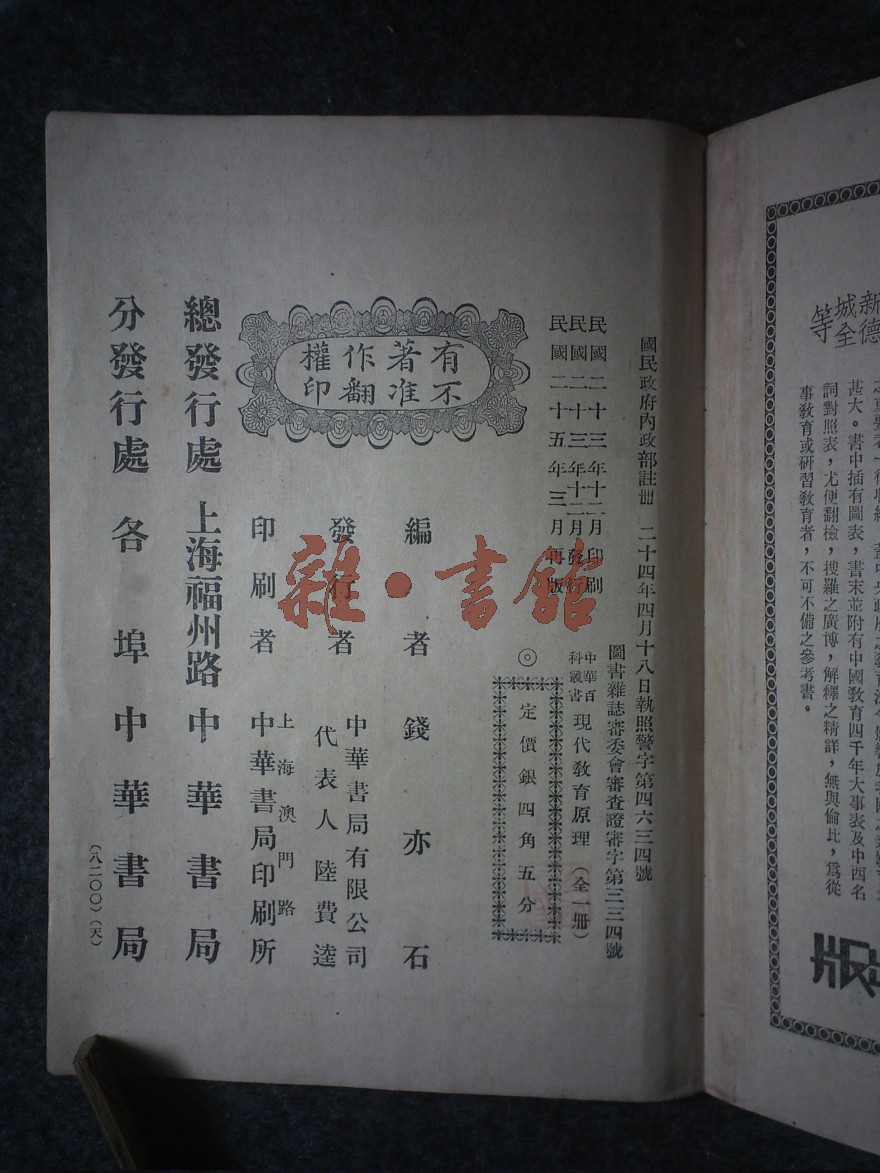 新德
城全
等
甚大。書中插有圖表，書末並附有中國教育四千年大事表及中西名
詞對照表，尤便翻檢，搜羅之廣博，解釋之精詳，無與倫比，爲從
事教育或研習教育者，不可不備之參考書。
國民政府內政部註冊　二十四年四月十八日執照警字第四六三四號
圖書雜誌審委會審查證審字第三三四號
民國二十三年十二月印刷
民國二十三年十二月發行
民國二十五年三月再版
中華百科叢書　現代教育原理（全一冊）
◎定價銀四角五分
有著作權
不准翻印
編者　錢亦石
發行者　中華書局有限公司
代表人　陸費逵
印刷者　上海澳門路
中華書局印刷所
總發行處　上海福州路　中華書局
分發行處　各埠中華書局
（八二〇〇）（天）
雜·書館